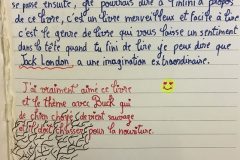 se passe ensuite, que pourrais dire à Tintin à propos
de ce livre, c'est un livre merveilleux et facile à lire
c'est le genre de livre que vous laisse un sentiment
dans la tête quand tu fini de lire je peux dire que
Jack London a une imagination extraordinaire.
J'ai vraiment aimé ce livre
et le thème avec Buck qui
de chien devient sauvage
et il doit chasser pour la nourriture.